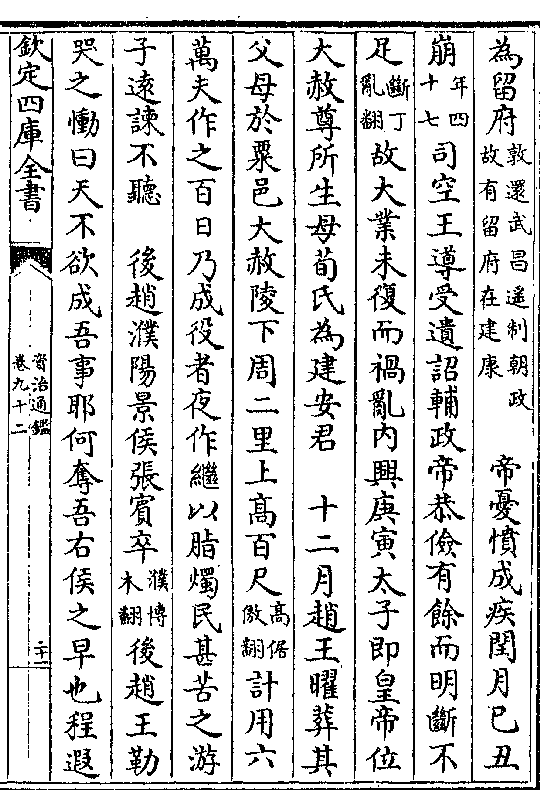 為留府敦還武昌遥制朝政故有留府在建康　帝憂憤成疾閏月已丑
崩年四十七司空王導受遺詔輔政帝恭儉有餘而明斷不
足斷丁亂翻故大業未復而禍亂内興庚寅太子即皇帝位
大赦尊所生母荀氏為建安君　十二月趙王曜葬其
父母於粟邑大赦陵下周二里上髙百尺髙居傲翻計用六
萬夫作之百日乃成役者夜作繼以脂燭民甚苦之游
子逺諫不聽　後趙濮陽景侯張賓卒濮博木翻後趙王勒
哭之慟曰天不欲成吾事耶何奪吾右侯之早也程遐
欽定四庫全書
資治通鑑
卷九十二
二十一